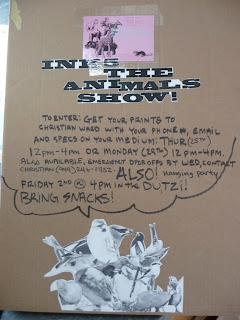 INKS
THE
ANIMALS
SHOW!
TO ENTER: GET YOUR PRINTS TO
CHRISTIAN WARD WITH YOUR PHONE #, EMAIL
AND SPECS ON YOUR MEDIUM: THUR (25TH)
12pm-4pm OR MONDAY (29TH) 12pm-4pm.
ALSO AVAILABLE, EMERGENT DROP OFFS BY WED, CONTACT
CHRISTIAN
ALSO! Hanging party
FRIDAY 2ND @ 4pm in the DUTZI!
BRING SNACKS!